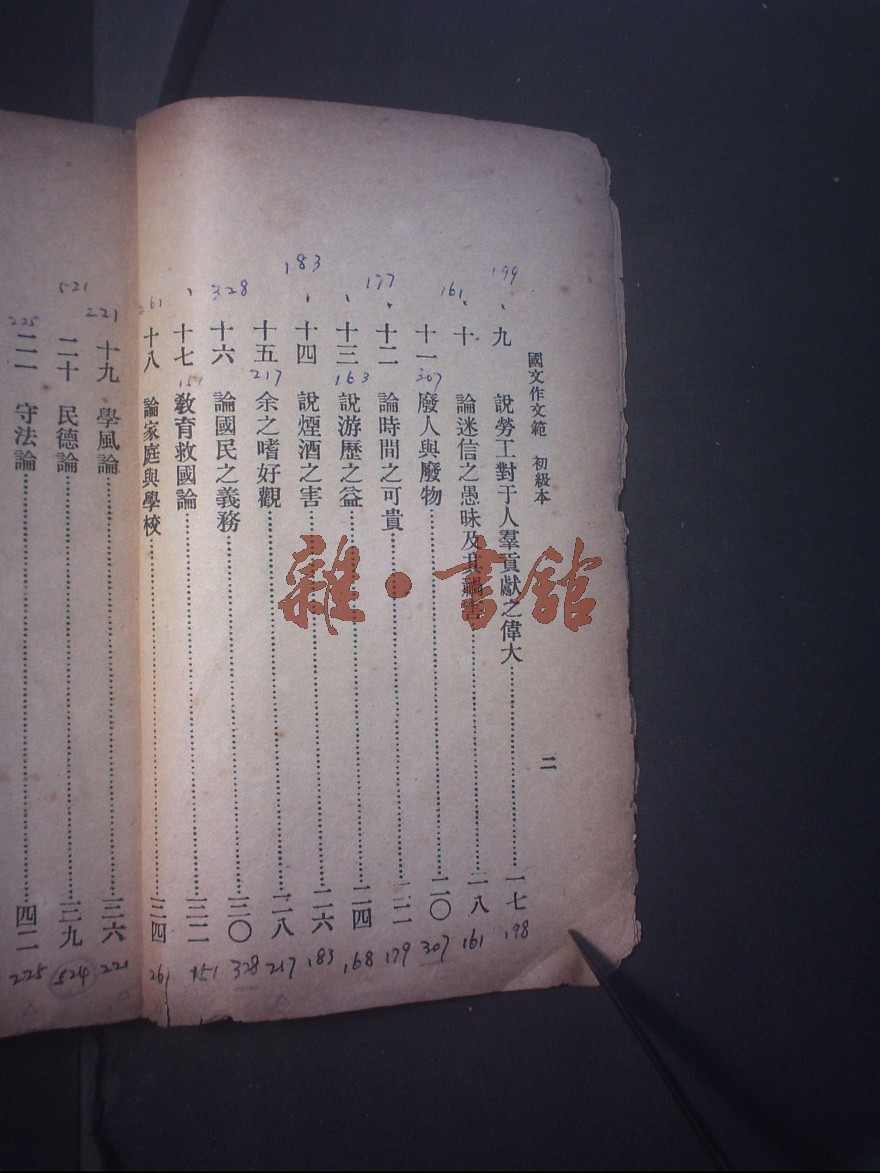 國文作文範 初級本 二
九 說勞工對于人羣貢獻之偉大 一七 198
十 論迷信之愚昧及其禍害 一八 161
十一 廢人與廢物 二〇 307
十二 論時間之可貴 二二 179
十三 說游歷之益 二四 168
十四 說煙酒之害 二六 183
十五 余之嗜好觀 二八 217
十六 論國民之義務 三〇 328
十七 教育救國論 三二 151
十八 論家庭與學校 三四 261
十九 學風論 三六 221
二十 民德論 三九 524
二一 守法論 四二 225
199
161
307
177
163
183
217
328
151
261
221
521
225
雜·書館